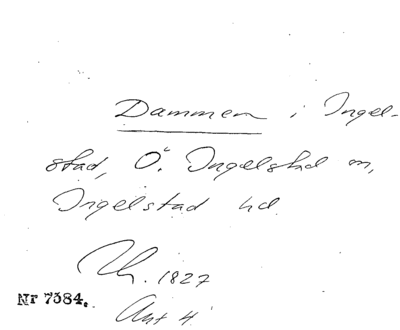 Dammen i Ingel-
stad, Ö. Ingelstad sn,
Ingelstad hd.
Th. 1827
Nr 7384.
Akt 4